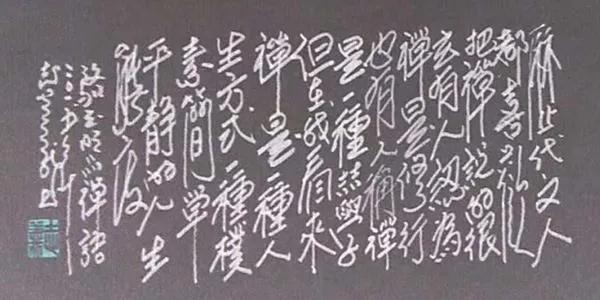 歷代文人
都喜歡
把禪說的很
玄有人認為
禪是修行
也有人稱禪
是一種哲學
但在我看來
禪是一種人
生方式一種樸
素簡單
平靜的人生
態度
禪語